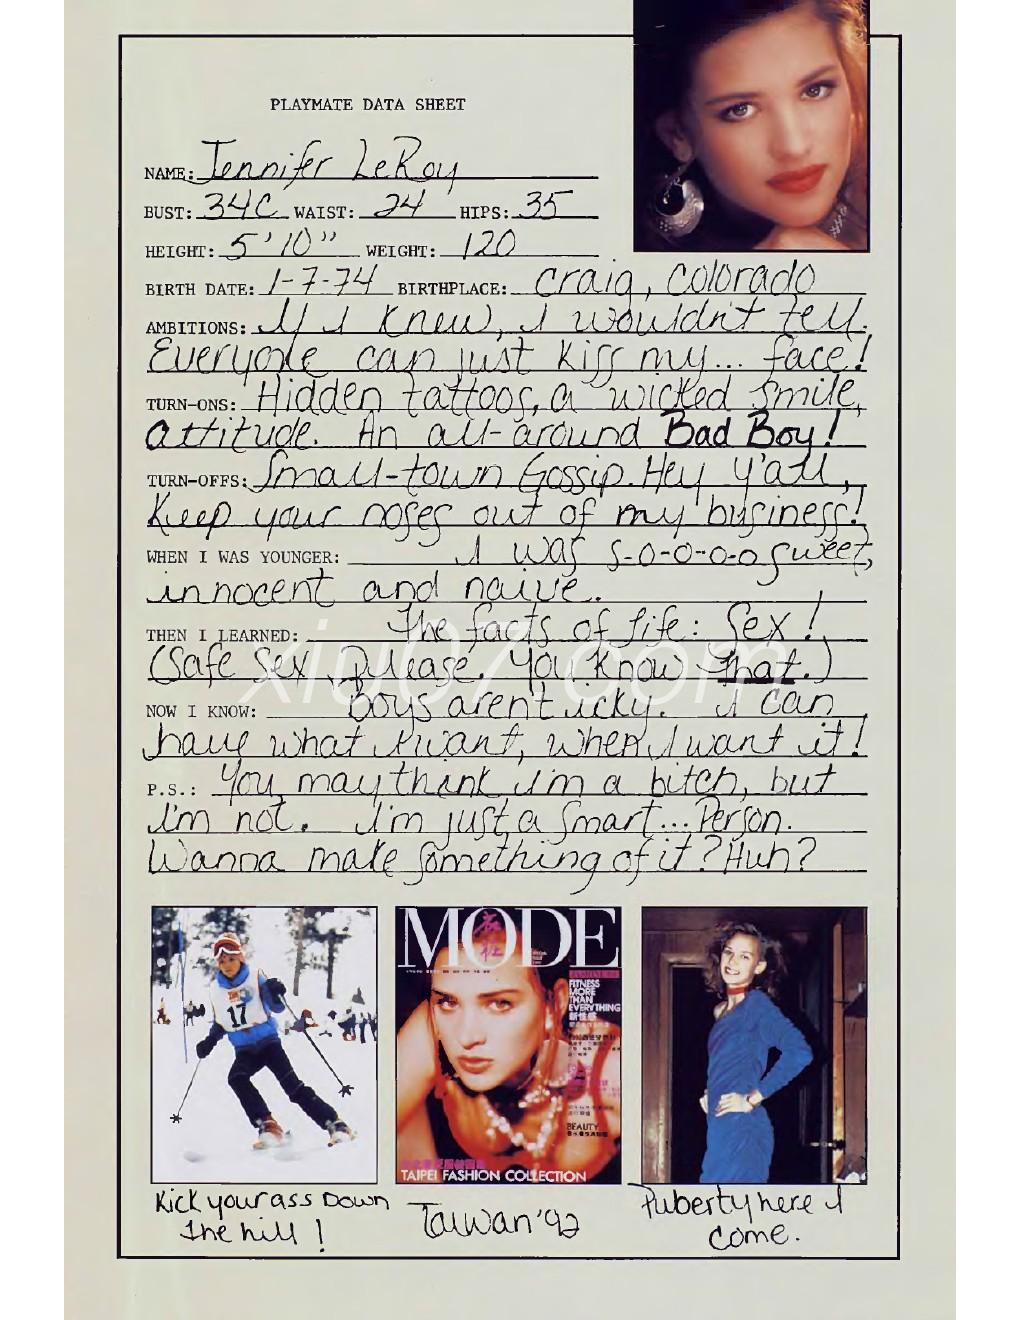 PLAYMATE DATA SHEET
NAME: Jennifer LeRoy
BUST: 34C WAIST: 24 HIPS: 35
HEIGHT: 5'10" WEIGHT: 120
BIRTH DATE: 1-7-74 BIRTHPLACE: Craig, Colorado
AMBITIONS: If I knew, I wouldn't tell.
Everyone can just kiss my... face!
TURN-ONS: Hidden tattoos, a wicked smile,
attitude. An all-around Bad Boy!
TURN-OFFS: Small-town Gossip. Hey y'all,
Keep your noses out of my business!
WHEN I WAS YOUNGER: I was s-o-o-o-o sweet,
innocent and naive.
THEN I LEARNED: The facts of life: Sex!
(Safe sex, please. You know that.)
xiu07.com
NOW I KNOW: Boys aren't icky. I can
have what I want, when I want it!
P.S.: You may think I'm a bitch, but
I'm not. I'm just a smart... Person.
Wanna make something of it? Huh?
17
MODE
FITNESS
MORE
THAN
EVERYTHING
新性感
BEAUTY
TAIPEI FASHION COLLECTION
Kick your ass Down
The hill!
Taiwan '92
Puberty here I
come.